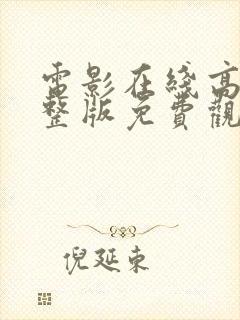 電影在綫高
整版免費觀
倪延東